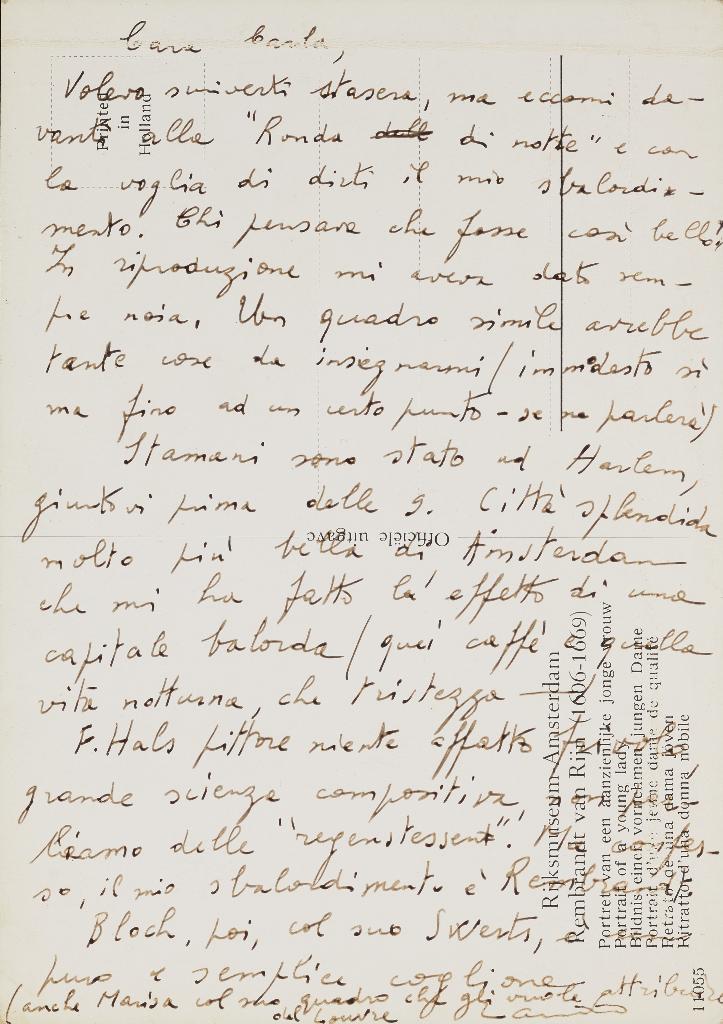 Cara Carla,
Volevo scriverti stasera, ma eccomi da-
vanti alla "Ronda di notte" e con
la voglia di dirti il mio sbalordi-
mento. Chi pensava che fosse così bello!
In riproduzione mi aveva dato sem-
pre noia. Un quadro simile avrebbe
tante cose da insegnarmi (immodesto sì
ma fino ad un certo punto - se ne parlerà)
Stamani sono stato ad Harlem,
giuntovi prima delle 9. Città splendida
molto più bella di Amsterdam
che mi ha fatto l'effetto di una
capitale balorda (quei caffè e quella
vita notturna, che tristezza
F. Hals pittore niente affatto
grande scienza compositiva,
delle "regentessen".
so, il mio sbalordimento è Rembrandt.
Bloch, poi, col suo Sweerts, è
puro e semplice coglione
(anche Marisa col suo quadro che gli vuole attribuire
del Louvre
Printed
in
Holland
Officiële uitgave
Rijksmuseum-Amsterdam
Rembrandt van Rijn (1606-1669)
Portret van een aanzienlijke jonge vrouw
Portrait of a young lady
Bildnis einer vornehmen jungen Dame
Portrait d'une jeune dame de qualité
Retrato de una dama joven
Ritratto d'una donna nobile
11055